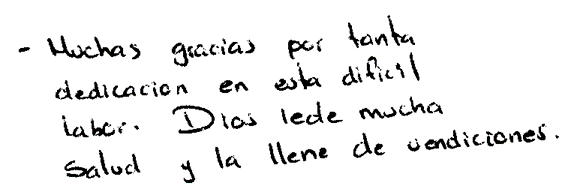 - Muchas gracias por tanta
dedicacion en esta dificil
labor. Dios lede mucha
Salud y la llene de vendiciones.